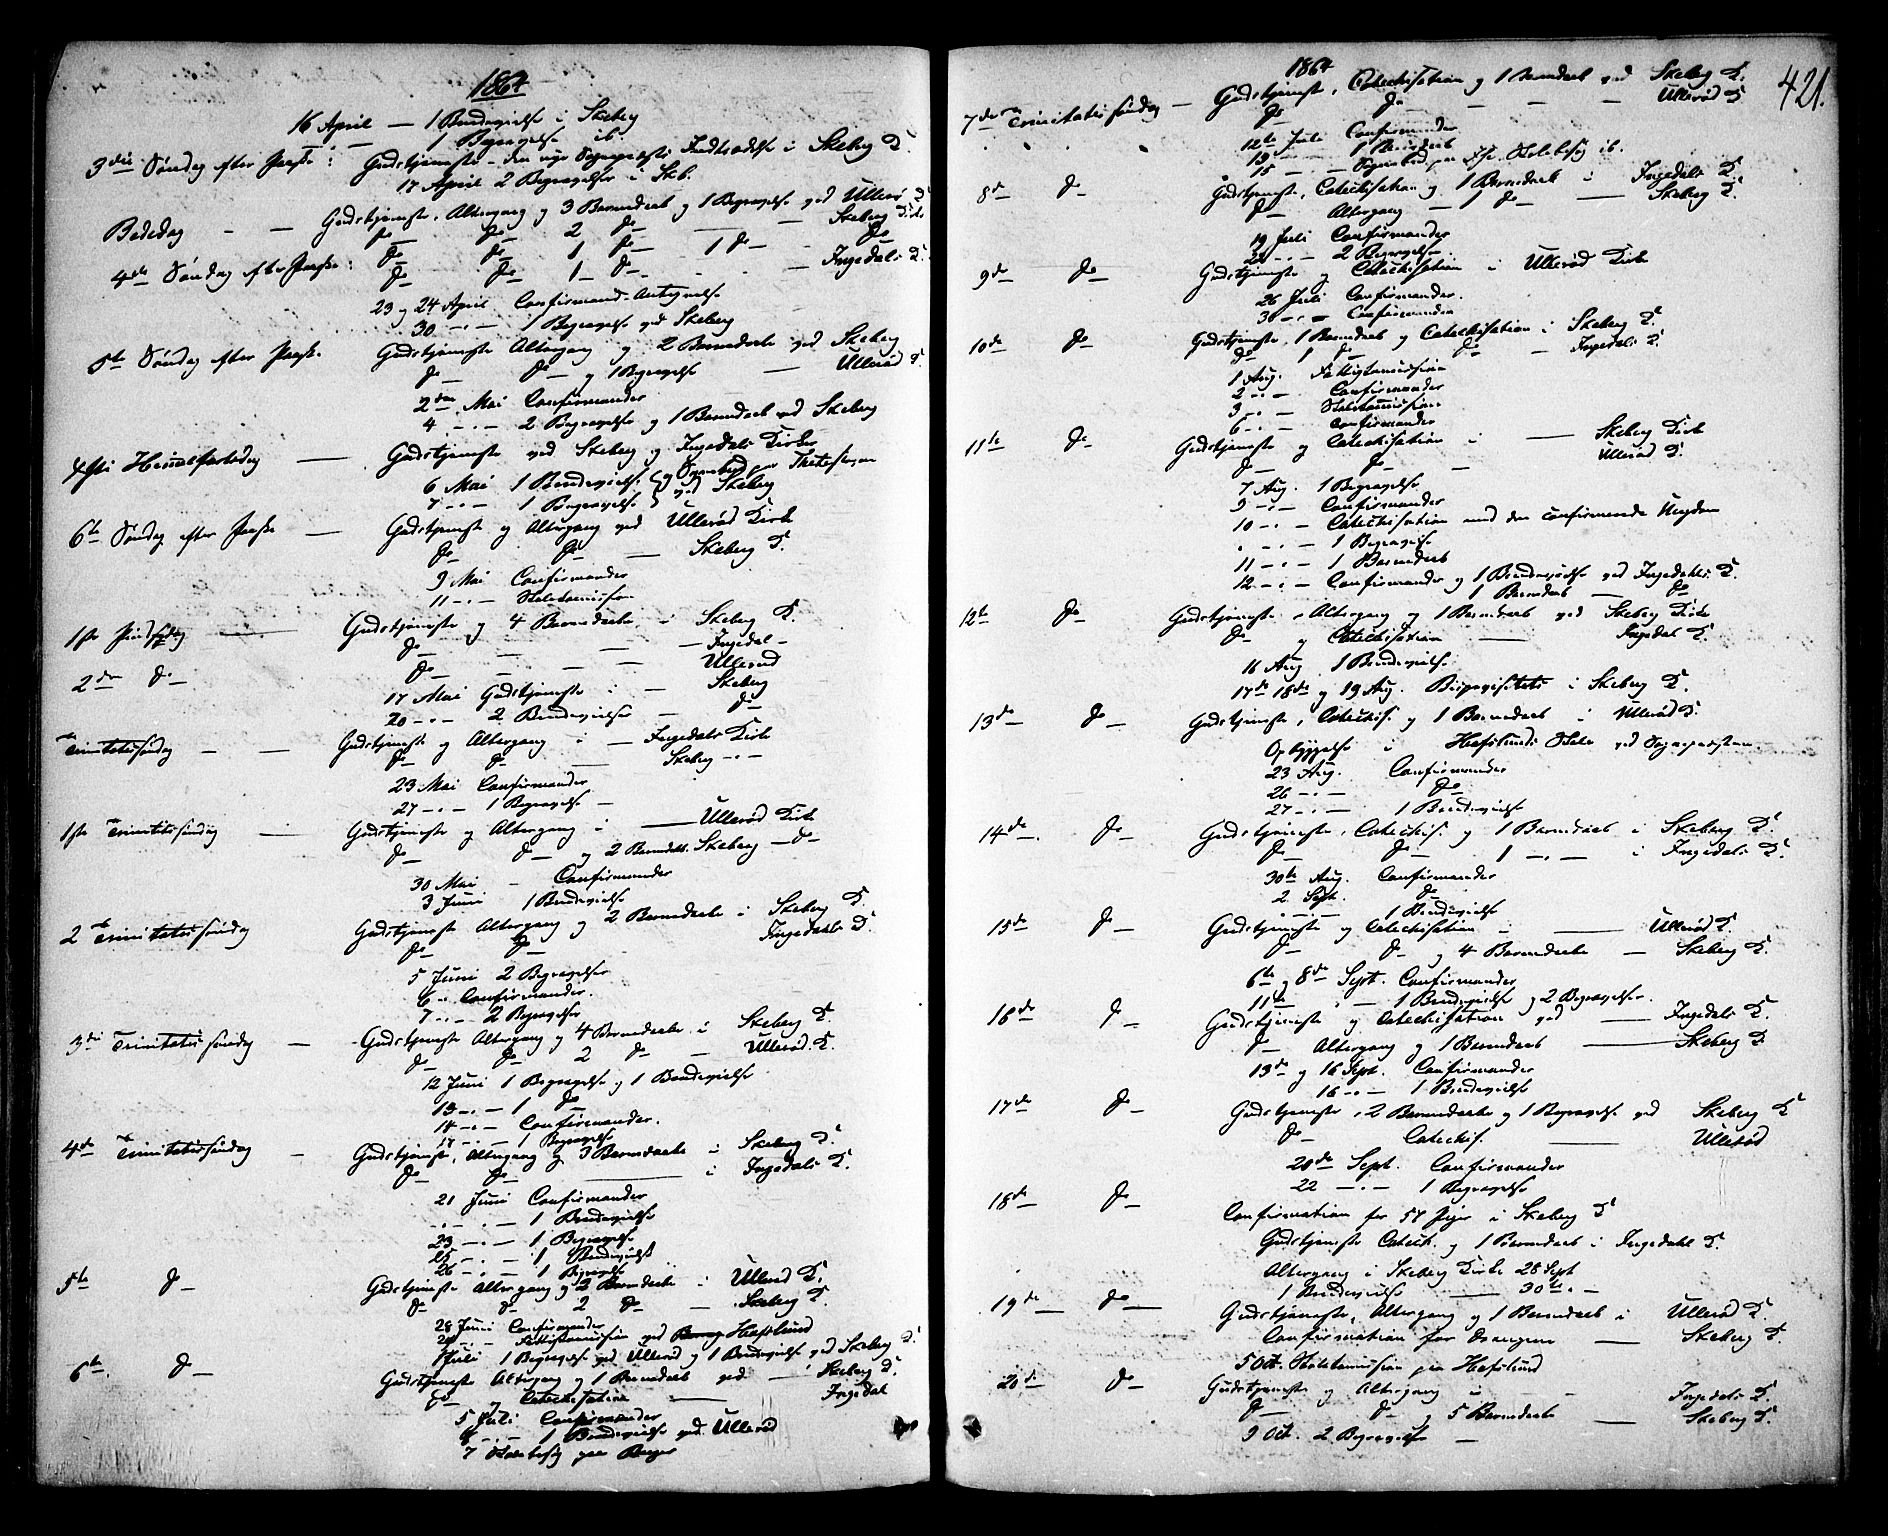 1864
16 April — 1 Brudevielse i Skeberg
1 Begravelse ib.
3die Søndag efter Paaske: Gudstjeneste – den nye Sognepræsts Indtrædelse i Skeberg K.
17 April 2 Begravelser i Skb.
Bededag — — Gudstjeneste, Altergang og 3 Barnedaab og 1 Begravelse ved Ullerø K
Do Do 2 Do — Skeberg Kirke
4de Søndag efter Paaske: Do Do 1 Do 1 Do — Do
Do Do 1 Do — Ingedals K.
23 og 24 April Confirmand-Antegnelse
30 — 1 Begravelse ved Skeberg
5te Søndag efter Paaske. Gudstjeneste Altergang og 2 Barnedaab ved Skeberg
Do Do — og 1 Begravelse — Ullerød K.
2den Mai Confirmander
4 — 2 Begravelse og 1 Barnedaab ved Skeberg
Christi Himmelfartsdag — Gudstjeneste ved Skeberg og Ingedals Kirker
6 Mai 1 Brudevielse og Sognebud
7 — 1 Begravelse ved Skeberg
6te Søndag efter Paaske — Gudstjeneste og Altergang ved Ullerød Kirke
Do Do — Skeberg K.
9 Mai Confirmander
11 — Skolekommission
1ste Pindsedag — Gudstjeneste og 4 Barnedaab i Skeberg K.
Do — — — Ingedal –
2den Do — Do — — — Ullerød
17 Mai Gudstjeneste i — Skeberg
20 — 2 Brudevielser — Do
Trinitatissøndag — — Gudstjeneste og Altergang i — Ingedals Kirke
Do Do — Skeberg —
23 Mai Confirmander
27 — 1 Begravelse —
1ste Trinitatissøndag — Gudstjeneste og Altergang i — Ullerød Kirke
Do Do og 2 Barnedb. Skeberg — Do
30 Mai — Confirmander
3 Juni 1 Brudevielse
2 Trinitatissøndag Gudstjeneste Altergang og 2 Barnedaabe i Skeberg K.
Do Do Ingedahls K.
5 Juni 2 Begravelser
6 — Confirmander.
7 — 2 Begravelse
3die Trinitatissøndag — Gudstjeneste Altergang og 4 Barnedaabe i Skeberg K.
Do Do 2 Do — Ullerød. K.
12 Juni 1 Begravelse og 1 Brudevielse
13 — 1 Do
14 — Confirmander.
17 — 1 Begravelse
4de Trinitatissøndag — Gudstjeneste, Altergang og 3 Barnedaabe i Skeberg K.
Do Do — i Ingedals K.
21 Juni Confirmander
— 1 Brudevielse
23 — 1 Begravelse
25 — 1 Brudevielse
26 — 1 Begravelse
5te Do Gudstjeneste Altergang og 2 Barnedaabe i Ullerød K.
Do Do 2 Do — Skeberg K.
28 Juni Confirmander
Fattigkommission ved Hafslund
1 Juli 1 Begravelse ved Ullerød og 1 Brudevielse ved Skeberg K.
6te. Do Gudstjeneste Altergang og 1 Barnedaab ved — Skeberg K.
Do og Catechisation — Ingedal
5 Juli Confirmander
6 — 1 Brudevielse ved Ullerød
7 Skolebesøg paa Berger
1864
421.
7de Trinitatissøndag — Gudstjeneste, Catechisation og 1 Barnedaab ved Skeberg K.
Do Do — — — Ullerød K
12te Juli Confirmander
13 — 1 Barnedaab
15 — Skolebesøg ib.
8de Do Gudstjeneste, Catechisation og 1 Barnedaab i Ingedals K.
Do Altergang — 1 Do — Skeberg K.
19 Juli Confirmander
— 2 Begravelse
9de Do Gudstjeneste og Catechisation i Ullerød Kirke
26 Juli Confirmander.
30 — Confirmander
10de Do Gudstjeneste, 1 Barnedaab og Catechisation i Skeberg K.
Do 1 Do Do — Ingedals K.
1 Aug. Fattigkommission
2 — Confirmander
3 — Skolekommission
6 — Confirmander
11te Do Gudstjeneste og Catechisation i — Skeberg Kirke
Do Do — Ullerød K.
7 Aug. 1 Begravelse
9 — Confirmander
10 — Catechisation med den confirmerede Ungdom
— 1 Begravelse
11 — 1 Barnedaab
12 — Confirmander og 1 Brudevielse ved Ingedahls K.
1 Barnedaab — Do
12te Do Gudstjeneste, Altergang og 1 Barnedaab ved Skeberg Kirke
Do og Catechisation — Ingedal K.
16 Aug 1 Brudevielse
17de 18de og 19 Aug. Bispevisitats i Skeberg K.
13de Do Gudstjeneste, Catechis. og 1 Barnedaab i Ullerød K.
i Hafslunds Skole ved Sognepræsten.
23 Aug. Confirmander
26 — Do
27 — 1 Brudevielse
14de. Do Gudstjeneste, Catechis. og 1 Barnedaab i Skeberg K.
Do Do 1 — i Ingedals K.
30te Aug. Confirmander
2 Sept. Do
— 1 Brudevielse
15de Do Gudstjeneste og Catechisation i — Ullerød K.
Do Do og 4 Barnedaabe — Skeberg K.
6te og 8de Sept. Confirmander
11te — 1 Brudevielse og 2 Begravelser.
16de Do Gudstjeneste og Catechisation ved — Ingedals K.
Do Altergang og 1 Barnedaab — Skeberg K
13de og 16 Sept. Confirmander
16 — 1 Brudevielse
17de Do Gudstjeneste, 2 Barnedaabe og 1 Begravelse ved Skeberg K
Do Catechis. — Ullerød
20de Sept. Confirmander
22 — 1 Begravelse
18de Do Confirmation for 57 Piger i Skeberg K
Gudstjeneste Catech. og 1 Barnedaab i Ingedahl K.
Altergang i Skeberg Kirke 28 Sept
1 Brudevielse — 30te —
19de — Do — Gudstjeneste, Altergang og 1 Barnedaab i Ullerød K.
Confirmation for Drengene — Skeberg K.
5 Oct. Skolekommission paa Hafslund
20de Do Gudstjeneste og Altergang i — Ingedals K.
Do Do og 5 Barnedaabe — Skeberg K.
9 Oct. 2 Begravelse —